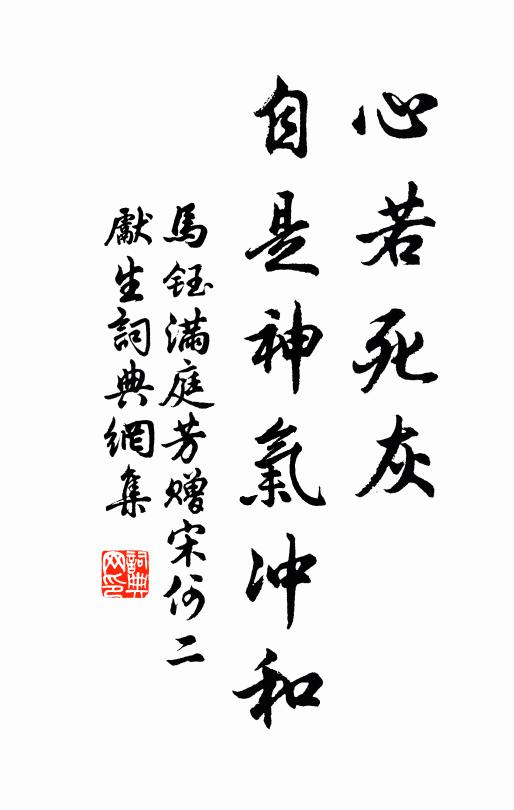 心若死灰
自是神氣冲和
馬鈺满庭芳赠宋何二
獻生詞典網集
詞典
网印